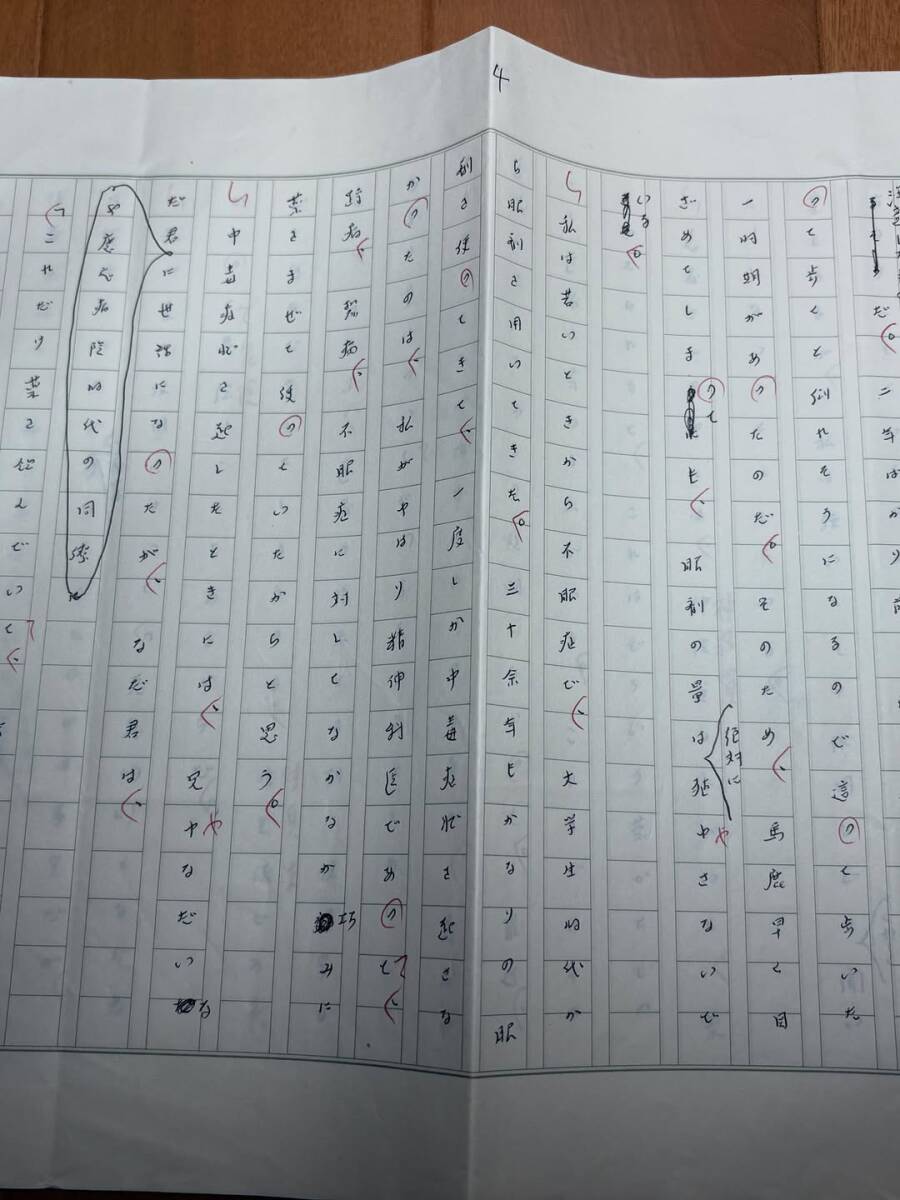 4
だ。二年ばかり前
って歩くと倒れそうになるので這って歩いた
一時期があったのだ。そのため、馬鹿早く目
ざめてしまっても、眠剤の量は絶対に殖やさないで
いる。
私は若いときから不眠症で、大学生時代か
ら眠剤を用いてきた。三十余年もかなりの眠
剤を使ってきて、一度しか中毒症状を起さな
かったのは、私がやはり精神科医であって、
不眠症に対してなかなか巧みに
薬をまぜて使っていたからと思う。
中毒症状を起したときには、兄やなだいな
だ君に世話になったが、なだ君は、
慶応病院時代の同僚
「これだけ薬を飲んでいて、